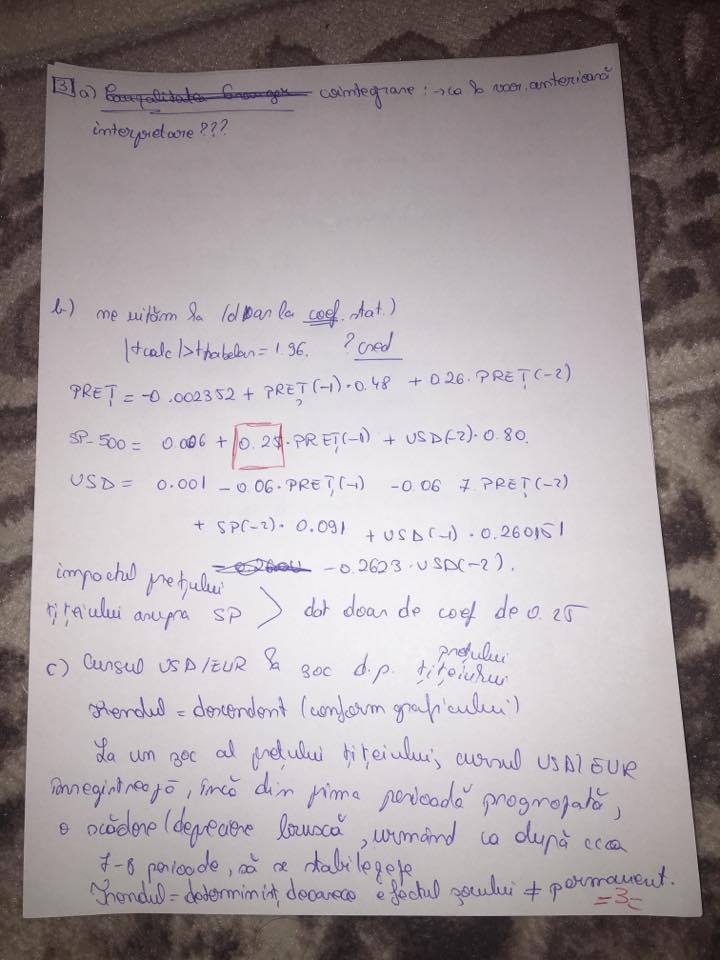 3 a) Cauzalitatea Granger cointegrare : → ca la var. anterioară
interpretare ???
b) ne uităm la (doar la coef. stat.)
|tcalc|>ttabelar = 1.96. ? cred
PREȚ = -0.002352 + PREȚ(-1)·0.48 + 0.26·PREȚ(-2)
SP-500 = 0.006 + 0.25·PREȚ(-1) + USD(-2)·0.80.
USD = 0.001 - 0.06·PREȚ(-1) - 0.067·PREȚ(-2)
+ SP(-2)·0.091 + USD(-1)·0.260151
- 0.2623·USD(-2).
impactul prețului
țițeiului asupra SP > dat doar de coef de 0.25
c) Cursul USD/EUR la șoc d.p. prețului țițeiului
Trendul = descendent (conform graficului)
La un șoc al prețului țițeiului, cursul USD/EUR
înregistrează, încă din prima perioadă prognozată,
o scădere (depreciere bruscă, urmând ca după cca
7-8 perioade, să se stabilizeze
Trendul = determinist, deoarece efectul șocului ≠ permanent.
=3=